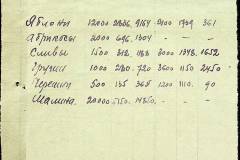 Яблони 12000 2836. 9164 9100 1799. 361
Абрикосы 2000 696. 1304
Сливы 1500 312 1188 3000 1348. 1652
Груши 1000 280. 720 3600 1150 2450
Черешни 500 135 365 1200 1110. 90
Малина. 20000 5150. 14850.